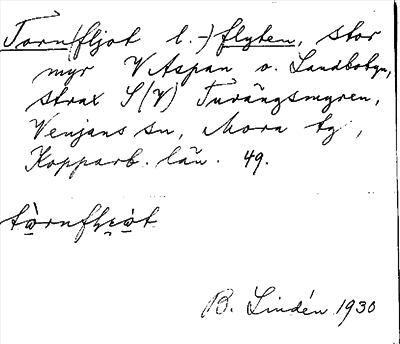 Torn(fljot l. -)flyten, stor
myr V Aspan o. Landbobyn,
strax S (V) Turängsmyren,
Venjans sn, Mora tg,
Kopparb. län. 49.
B. Lindén 1930